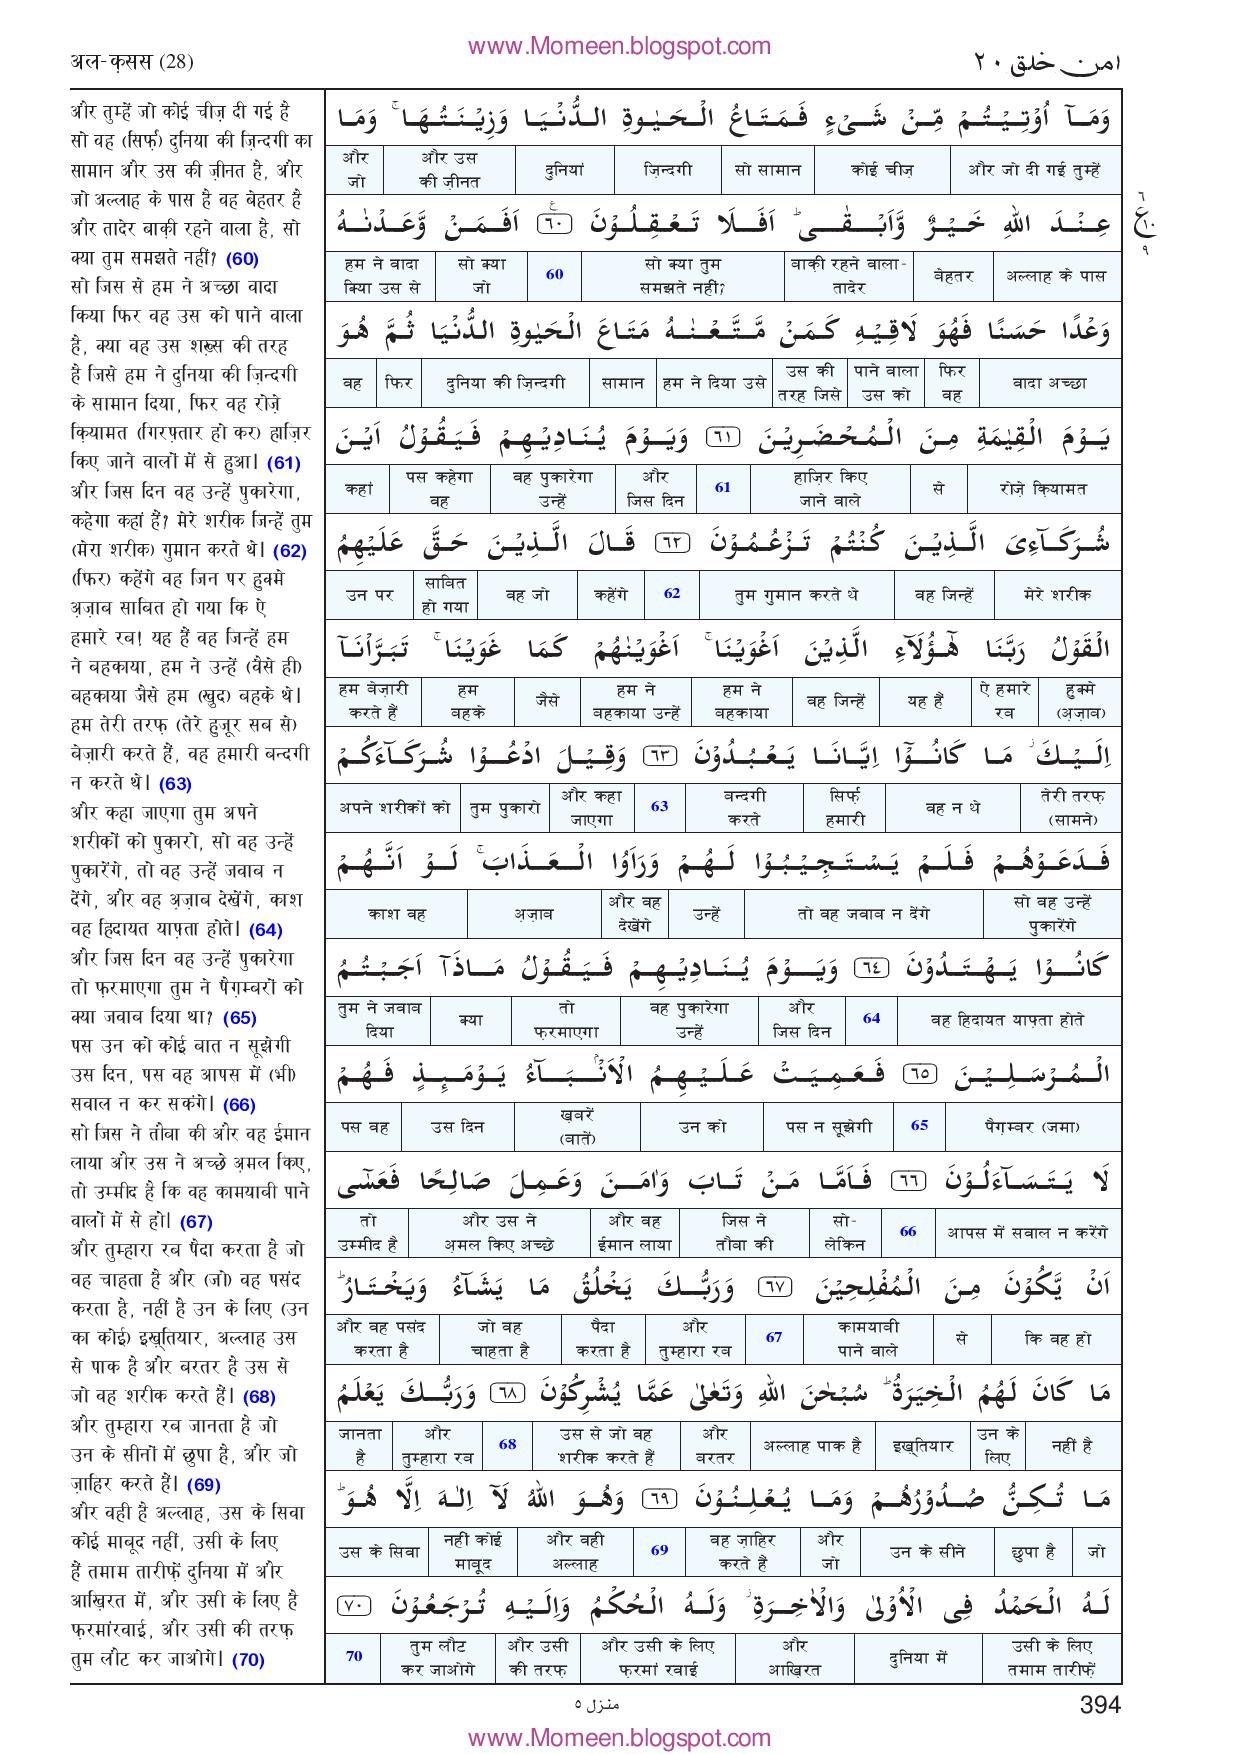 www.Momeen.blogspot.com
अल-क़सस (28)
امن خلق ٢٠
और तुम्हें जो कोई चीज़ दी गई है
सो वह (सिर्फ़) दुनिया की ज़िन्दगी का
सामान और उस की ज़ीनत है, और
जो अल्लाह के पास है वह बेहतर है
और तादेर बाक़ी रहने वाला है, सो
क्या तुम समझते नहीं? (60)
सो जिस से हम ने अच्छा वादा
किया फिर वह उस को पाने वाला
है, क्या वह उस शख़्स की तरह
है जिसे हम ने दुनिया की ज़िन्दगी
के सामान दिया, फिर वह रोज़े
क़ियामत (गिरफ़्तार हो कर) हाज़िर
किए जाने वालों में से हुआ। (61)
और जिस दिन वह उन्हें पुकारेगा,
कहेगा कहां हैं? मेरे शरीक जिन्हें तुम
(मेरा शरीक) गुमान करते थे। (62)
(फिर) कहेंगे वह जिन पर हुक्मे
अ़ज़ाब साबित हो गया कि ऐ
हमारे रब! यह हैं वह जिन्हें हम
ने बहकाया, हम ने उन्हें (वैसे ही)
बहकाया जैसे हम (ख़ुद) बहके थे।
हम तेरी तरफ़ (तेरे हुज़ूर सब से)
बेज़ारी करते हैं, वह हमारी बन्दगी
न करते थे। (63)
और कहा जाएगा तुम अपने
शरीकों को पुकारो, सो वह उन्हें
पुकारेंगे, तो वह उन्हें जवाब न
देंगे, और वह अ़ज़ाब देखेंगे, काश
वह हिदायत याफ़्ता होते। (64)
और जिस दिन वह उन्हें पुकारेगा
तो फ़रमाएगा तुम ने पैग़म्बरों को
क्या जवाब दिया था? (65)
पस उन को कोई बात न सूझेगी
उस दिन, पस वह आपस में (भी)
सवाल न कर सकंगे। (66)
सो जिस ने तौबा की और वह ईमान
लाया और उस ने अच्छे अ़मल किए,
तो उम्मीद है कि वह कामयाबी पाने
वालों में से हो। (67)
और तुम्हारा रब पैदा करता है जो
वह चाहता है और (जो) वह पसंद
करता है, नहीं है उन के लिए (उन
का कोई) इख़्तियार, अल्लाह उस
से पाक है और बरतर है उस से
जो वह शरीक करते हैं। (68)
और तुम्हारा रब जानता है जो
उन के सीनों में छुपा है, और जो
ज़ाहिर करते हैं। (69)
और वही है अल्लाह, उस के सिवा
कोई माबूद नहीं, उसी के लिए
हैं तमाम तारीफ़ें दुनिया में और
आख़िरत में, और उसी के लिए है
फ़रमांरवाई, और उसी की तरफ़
तुम लौट कर जाओगे। (70)
وَمَآ اُوْتِيْتُمْ مِّنْ شَىْءٍ فَمَتَاعُ الْحَيٰوةِ الدُّنْيَا وَزِيْنَتُهَا ۚ وَمَا
और जो दी गई तुम्हें कोई चीज़ सो सामान ज़िन्दगी दुनियां और उस की ज़ीनत और जो
عِنْدَ اللهِ خَيْرٌ وَّاَبْقٰى ؕ اَفَلَا تَعْقِلُوْنَ ٦٠ اَفَمَنْ وَّعَدْنٰهُ
अल्लाह के पास बेहतर बाक़ी रहने वाला-तादेर सो क्या तुम समझते नहीं? 60 सो क्या जो हम ने वादा किया उस से
وَعْدًا حَسَنًا فَهُوَ لَاقِيْهِ كَمَنْ مَّتَّعْنٰهُ مَتَاعَ الْحَيٰوةِ الدُّنْيَا ثُمَّ هُوَ
वादा अच्छा फिर वह पाने वाला उस को उस की तरह जिसे हम ने दिया उसे सामान दुनिया की ज़िन्दगी फिर वह
يَوْمَ الْقِيٰمَةِ مِنَ الْمُحْضَرِيْنَ ٦١ وَيَوْمَ يُنَادِيْهِمْ فَيَقُوْلُ اَيْنَ
रोज़े क़ियामत से हाज़िर किए जाने वाले 61 और जिस दिन वह पुकारेगा उन्हें पस कहेगा वह कहां
شُرَكَآءِىَ الَّذِيْنَ كُنْتُمْ تَزْعُمُوْنَ ٦٢ قَالَ الَّذِيْنَ حَقَّ عَلَيْهِمُ
मेरे शरीक वह जिन्हें तुम गुमान करते थे 62 कहेंगे वह जो साबित हो गया उन पर
الْقَوْلُ رَبَّنَا هٰٓؤُلَآءِ الَّذِيْنَ اَغْوَيْنَا ۚ اَغْوَيْنٰهُمْ كَمَا غَوَيْنَا ۚ تَبَرَّاْنَآ
हुक्मे (अ़ज़ाब) ऐ हमारे रब यह हैं वह जिन्हें हम ने बहकाया हम ने बहकाया उन्हें जैसे हम बहके हम बेज़ारी करते हैं
اِلَيْكَ ؗ مَا كَانُوْٓا اِيَّانَا يَعْبُدُوْنَ ٦٣ وَقِيْلَ ادْعُوْا شُرَكَآءَكُمْ
तेरी तरफ़ (सामने) वह न थे सिर्फ़ हमारी बन्दगी करते 63 और कहा जाएगा तुम पुकारो अपने शरीकों को
فَدَعَوْهُمْ فَلَمْ يَسْتَجِيْبُوْا لَهُمْ وَرَاَوُا الْعَذَابَ ۚ لَوْ اَنَّهُمْ
सो वह उन्हें पुकारेंगे तो वह जवाब न देंगे उन्हें और वह देखेंगे अ़ज़ाब काश वह
كَانُوْا يَهْتَدُوْنَ ٦٤ وَيَوْمَ يُنَادِيْهِمْ فَيَقُوْلُ مَاذَآ اَجَبْتُمُ
वह हिदायत याफ़्ता होते 64 और जिस दिन वह पुकारेगा उन्हें तो फ़रमाएगा क्या तुम ने जवाब दिया
الْمُرْسَلِيْنَ ٦٥ فَعَمِيَتْ عَلَيْهِمُ الْاَنْۢبَآءُ يَوْمَئِذٍ فَهُمْ
पैग़म्बर (जमा) 65 पस न सूझेगी उन को ख़बरें (बातें) उस दिन पस वह
لَا يَتَسَآءَلُوْنَ ٦٦ فَاَمَّا مَنْ تَابَ وَاٰمَنَ وَعَمِلَ صَالِحًا فَعَسٰٓى
आपस में सवाल न करेंगे 66 सो-लेकिन जिस ने तौबा की और वह ईमान लाया और उस ने अ़मल किए अच्छे तो उम्मीद है
اَنْ يَّكُوْنَ مِنَ الْمُفْلِحِيْنَ ٦٧ وَرَبُّكَ يَخْلُقُ مَا يَشَآءُ وَيَخْتَارُ ؕ
कि वह हो से कामयाबी पाने वाले 67 और तुम्हारा रब पैदा करता है जो वह चाहता है और वह पसंद करता है
مَا كَانَ لَهُمُ الْخِيَرَةُ ؕ سُبْحٰنَ اللهِ وَتَعٰلٰى عَمَّا يُشْرِكُوْنَ ٦٨ وَرَبُّكَ يَعْلَمُ
नहीं है उन के लिए इख़्तियार अल्लाह पाक है और बरतर उस से जो वह शरीक करते हैं 68 और तुम्हारा रब जानता है
مَا تُكِنُّ صُدُوْرُهُمْ وَمَا يُعْلِنُوْنَ ٦٩ وَهُوَ اللهُ لَآ اِلٰهَ اِلَّا هُوَ ؕ
जो छुपा है उन के सीने और जो वह ज़ाहिर करते हैं 69 और वही अल्लाह नहीं कोई माबूद उस के सिवा
لَهُ الْحَمْدُ فِى الْاُوْلٰى وَالْاٰخِرَةِ ؗ وَلَهُ الْحُكْمُ وَاِلَيْهِ تُرْجَعُوْنَ ٧٠
उसी के लिए तमाम तारीफ़ें दुनिया में और आख़िरत और उसी के लिए फ़रमां रवाई और उसी की तरफ़ तुम लौट कर जाओगे 70
٦
ع ١٠
٩
منزل ٥
394
www.Momeen.blogspot.com